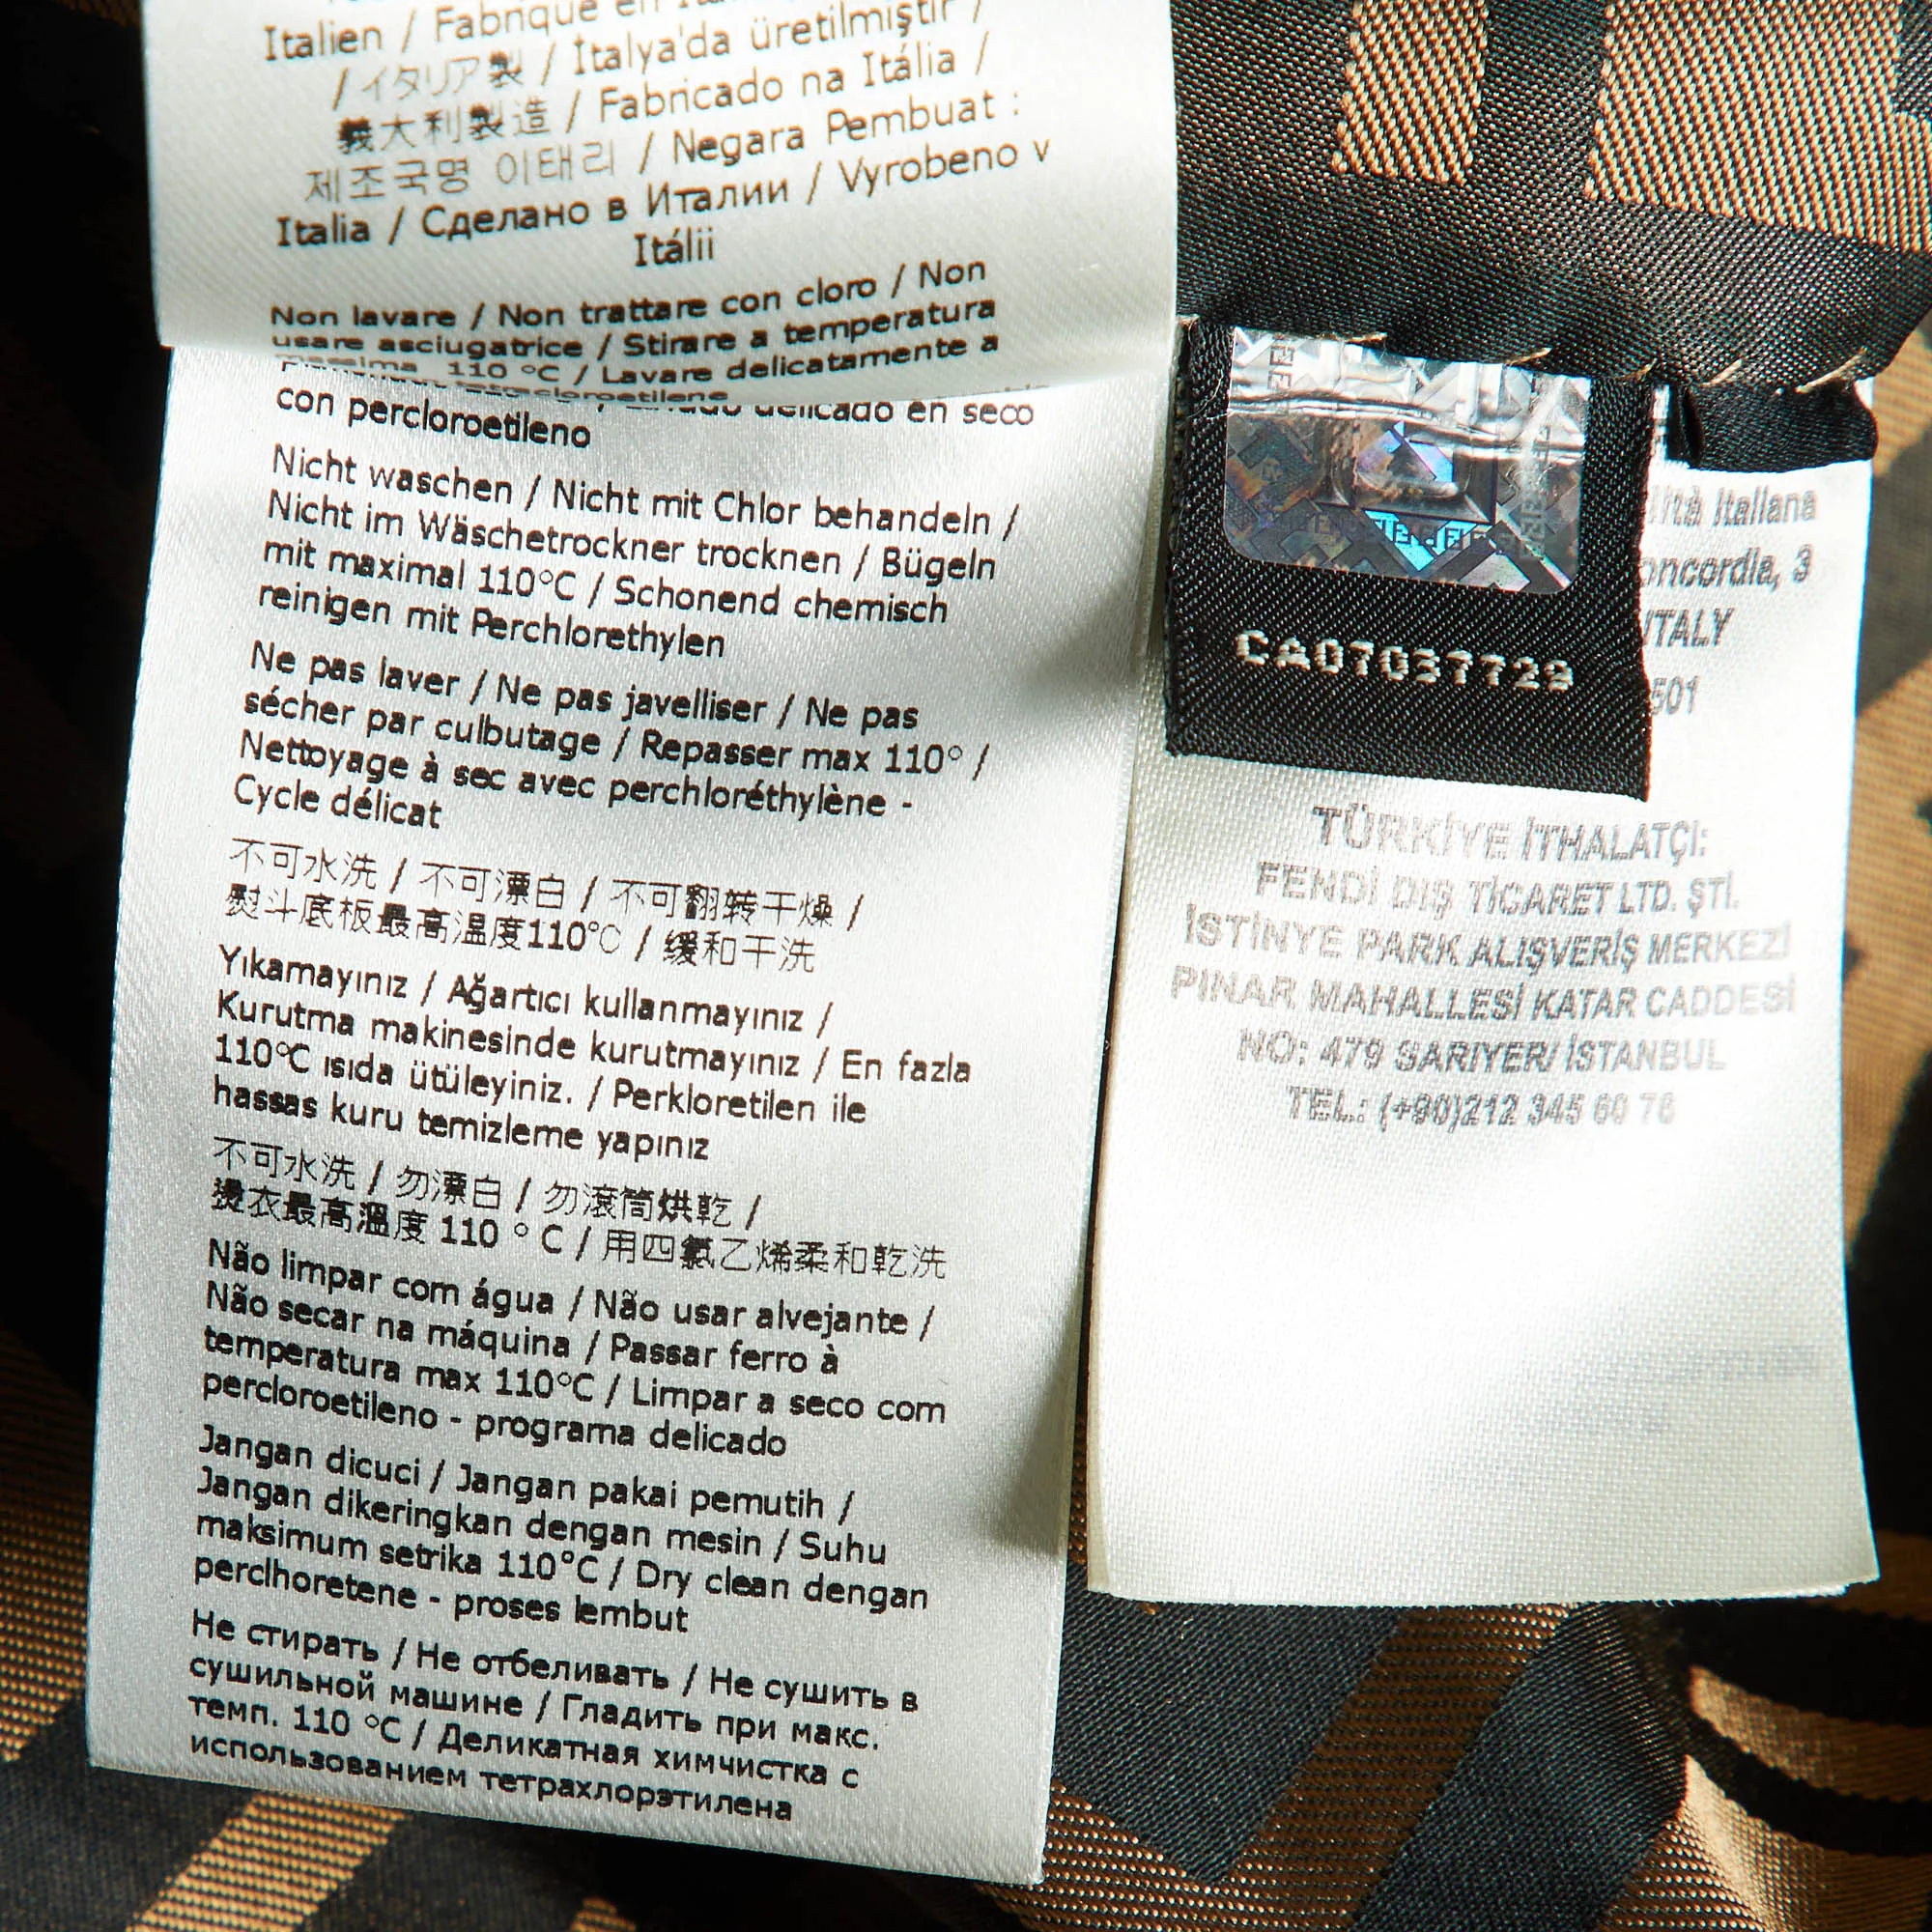 Italien / Fabriqué en
/ イタリア製 / İtalya'da üretilmiştir /
義大利製造 / Fabricado na Itália /
제조국명 이태리 / Negara Pembuat :
Italia / Сделано в Италии / Vyrobeno v
Itálii
Non lavare / Non trattare con cloro / Non
usare asciugatrice / Stirare a temperatura
massima 110 °C / Lavare delicatamente a
tetracloroetilene
delicado en seco
con percloroetileno
Nicht waschen / Nicht mit Chlor behandeln /
Nicht im Wäschetrockner trocknen / Bügeln
mit maximal 110°C / Schonend chemisch
reinigen mit Perchlorethylen
Ne pas laver / Ne pas javelliser / Ne pas
sécher par culbutage / Repasser max 110° /
Nettoyage à sec avec perchloréthylène -
Cycle délicat
不可水洗 / 不可漂白 / 不可翻转干燥 /
熨斗底板最高温度110℃ / 缓和干洗
Yıkamayınız / Ağartıcı kullanmayınız /
Kurutma makinesinde kurutmayınız / En fazla
110°C ısıda ütüleyiniz. / Perkloretilen ile
hassas kuru temizleme yapınız
不可水洗 / 勿漂白 / 勿滾筒烘乾 /
燙衣最高溫度 110 ° C / 用四氯乙烯柔和乾洗
Não limpar com água / Não usar alvejante /
Não secar na máquina / Passar ferro à
temperatura max 110°C / Limpar a seco com
percloroetileno - programa delicado
Jangan dicuci / Jangan pakai pemutih /
Jangan dikeringkan dengan mesin / Suhu
maksimum setrika 110°C / Dry clean dengan
perclhoretene - proses lembut
Не стирать / Не отбеливать / Не сушить в
сушильной машине / Гладить при макс.
темп. 110 °C / Деликатная химчистка с
использованием тетрахлорэтилена
CA07037729
Italiana
3
ITALY
501
TÜRKİYE İTHALATÇI:
FENDİ DIŞ TİCARET LTD. ŞTİ.
İSTİNYE PARK ALIŞVERİŞ MERKEZİ
PINAR MAHALLESİ KATAR CADDESİ
NO: 479 SARIYER/ İSTANBUL
TEL.: (+90)212 345 60 76